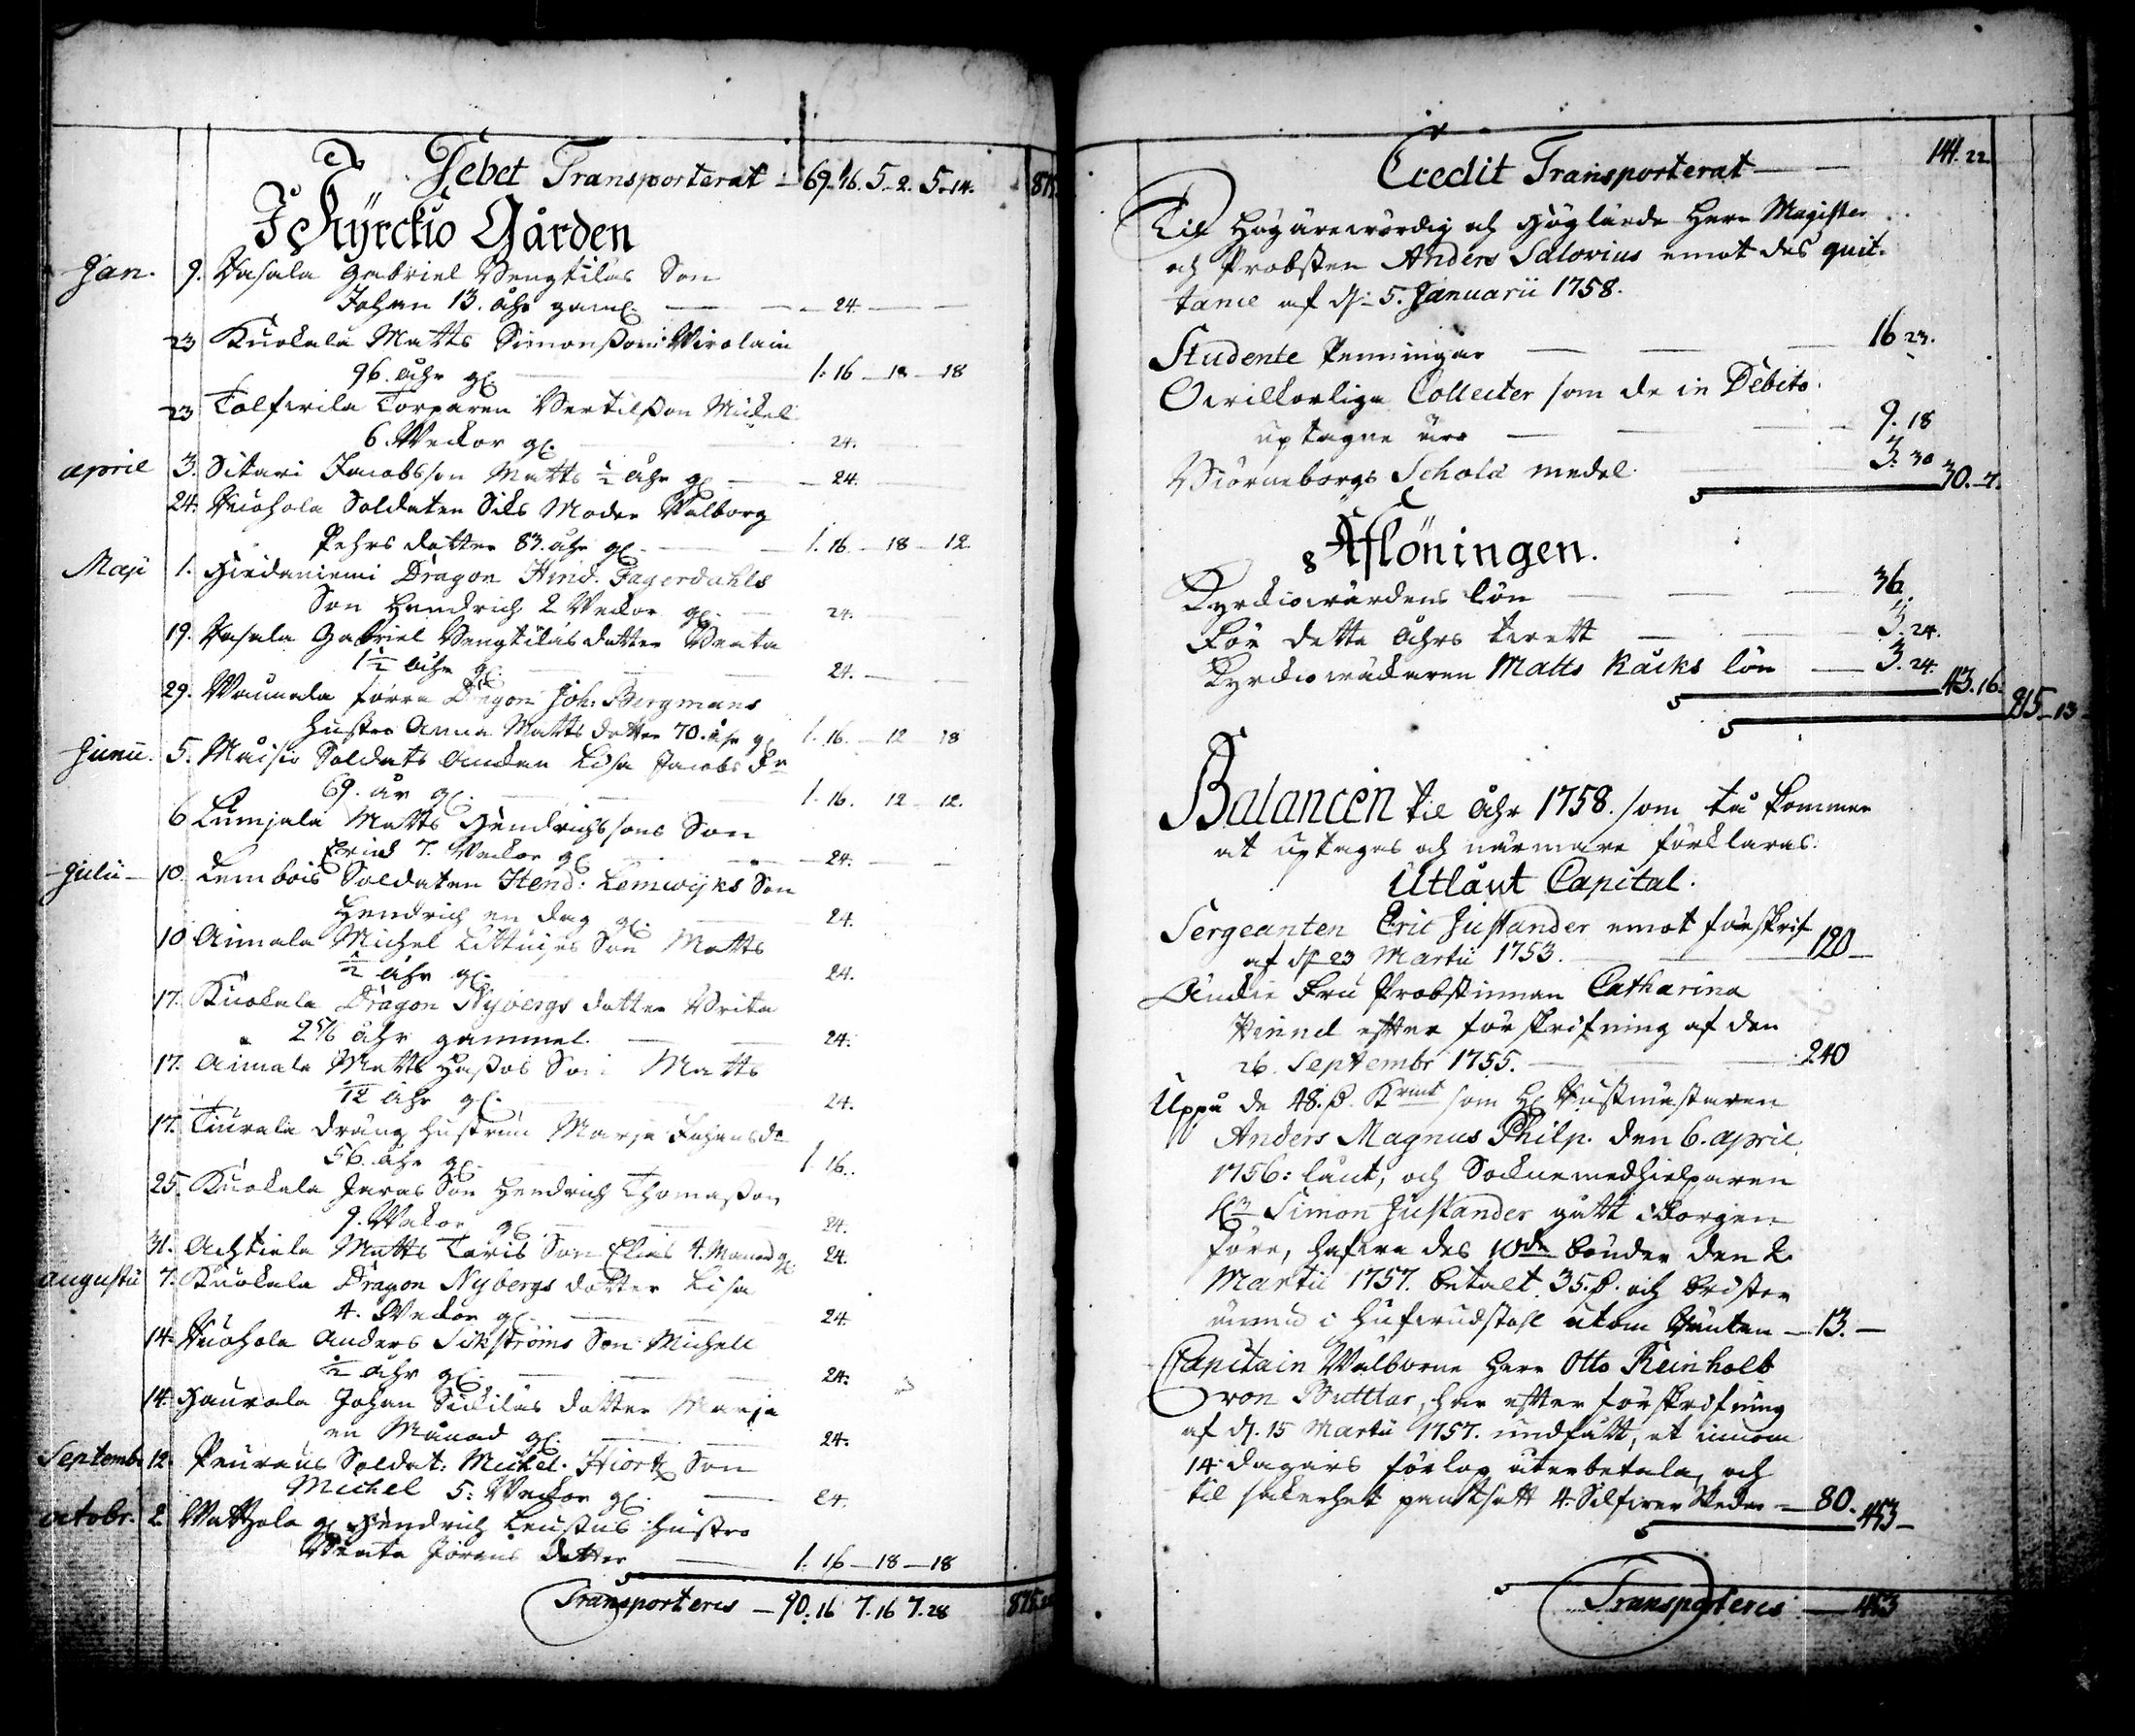 Debet Transporterat — 69. 16. 5. 2. 5. 14.
I Kÿrckio Gården
Jan. 9. Vasala Gabriel Bengtilas Son
Johan 13. åhr gaml. — 24.
23 Kuokala Matts Simonsson Virolain
96. åhr gl. 1. 16 — 18 — 18
23 Tolfvila Torparen Bertilsson Mickel
6. Weckor gl. 24.
april 3. Sikari Jacobsson Matts ½ åhr gl — 24.
24. Vuohola Soldaten Siks Moder Valborg
Pehrs dotter 83. åhr gl. — 1. 16. — 18 — 12.
Maji 1. Hiedaniemi Dragon Hind. Fagerdahls
Son Hendrich 2 Weckor gl. — 24.
19. Vasala Gabriel Bengtilas dotter Beata
1½ åhr gl. 24.
29. förra Dragon Joh. Bergmans
hustro Anna Matts dotter 70. åhr gl 1. 16. — 12 — 18
Junii. 5. Maisio Soldats Enckan Lisa Jacobs Dr
69. år gl. 1. 16. 12 — 12.
6 Lumjala Matts Hendrichssons Son
Erich 7. Weckor gl. — 24.
Julii — 10. Lembois Soldaten Hend: Lemwijks Son
Hendrich en dag gl. 24.
10 Aimala Michel Son Matts
½ åhr gl. 24.
17. Kuokala Dragon Nybergs dotter Brita
2 5/6 åhr gammal. 24.
17. Aimala Matts Son Matts
1/12 åhr gl. 24.
17. Tiurala dräng hustrun Marja Johansdr
56. åhr gl. 1. 16.
25. Kuokala Jaras Son Hendrich Thomasson
9. Weckor gl 24.
31. Achtiala Matts Taris Son Elias 4. Månad gl. 24.
augusti 7. Kuokala Dragon Nybergs dotter Lisa
4. Weckor gl. 24.
14. Vuohola Anders Sikströms Son Michell
½ åhr gl. 24.
14. Haurala Johan Sickilas dotter Marja
en Månad gl. 24.
Septembr 12. Peuraus Soldat: Mickel Hiort Son
Michel 5: Weckor gl. — 24.
octobr. 2. Wattzala gl Hendrich hustro
Beata Jörans dotter — 1. 16 — 18 — 18
Transporteres — 90. 16 7. 16 7. 28
Credit Transporterat — 141. 22
Til Högärewördig och Höglärde Herr Magister
och Probsten Anders Salovius emot des quit-
tance af d. 5. Januarii 1758.
Studente Penningar — 16 23.
Owilkorlige Collecter som de in Debito
uptagne äro — 9. 18
Biörneborgs Schola medel. 3. 30 30. 7.
Aflöningen.
Kyrckiowärdens lön — 36.
För dette åhrs — 3. 24.
Kyrckiowäckaren Matts Råcks lön — 3. 24. 43. 16.
215 — 13
Balancen til åhr 1758. som tå kommer
at uptagas och närmare förklaras.
Utlånt Capital.
Sergeanten Eric Justander emot förskrif
af d. 23 Martii 1753. — 120 —
Änckie Fru Probstinnan Catharina
efter förskrifning af den
26. Septembr 1755. — 240
Uppå de 48. p. Krmt som Hr Rustmästaren
Anders Magnus Philp. den 6. april.
1756: länt, och Sockne medhielparen
Hr Simon Justander gått i borgen
före, hafwa des 10de bönder den 2.
Martii 1757. betalt 35. p. och brister
ännu i hufwudstohl utom Räntan — 13. —
Capitain Wälborne Herr Otto Reinholt
von Buttlar, har efter förskrifning
af d. 15 Martii 1757. undfått, at innom
14 dagars förlop återbetala, och
til säkerhet pantsatt 4. Silfwer Skedar — 80. 453 —
Transporteres — 453